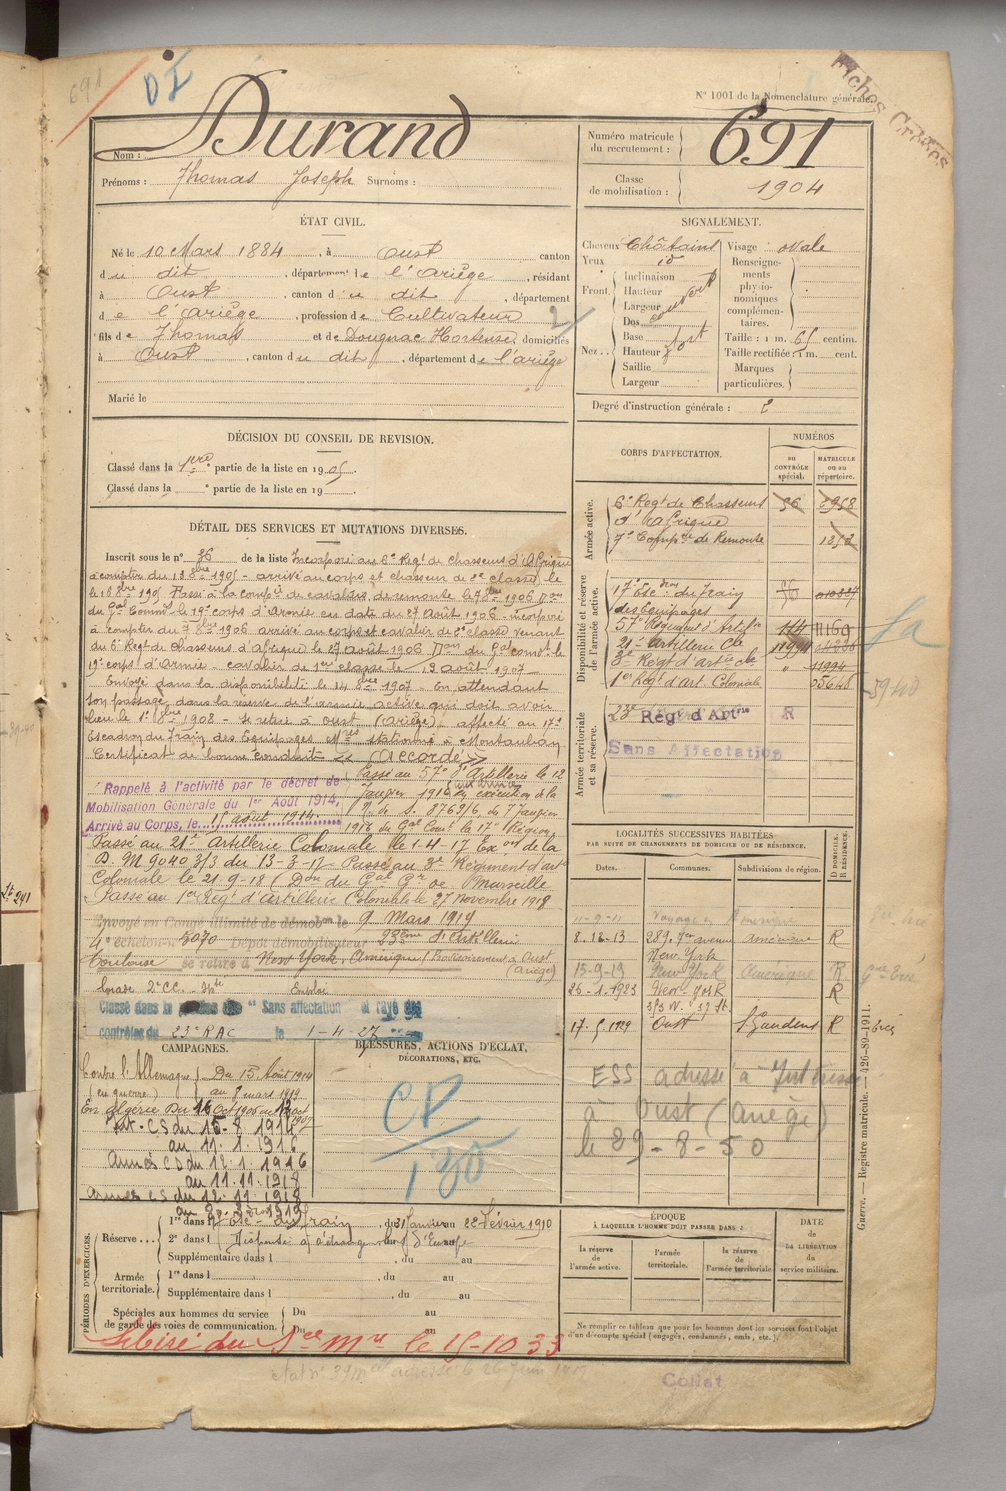 691
DI
N° 1001 de la Nomenclature générale.
Fiches Croisées
Nom : Durand
Prénoms : Thomas Joseph Surnoms :
Numéro matricule du recrutement : 691
Classe de mobilisation : 1904
ÉTAT CIVIL.
Né le 10 Mars 1884, à Oust canton
du dit, département de l'Ariège, résidant
à Oust, canton du dit, département
de l'Ariège, profession de Cultivateur
fils de Thomas et de Dougnac Hortense, domiciliés
à Oust, canton du dit, département de l'Ariège
Marié le
SIGNALEMENT.
Cheveux Châtains Visage : ovale
Yeux id
Front. Inclinaison
Hauteur
Largeur
Nez... Dos
Base
Hauteur fort
Saillie
Largeur
Renseignements physionomiques complémentaires.
Taille : 1 m. 65 centim.
Taille rectifiée : 1 m. cent.
Marques particulières.
Degré d'instruction générale : 2
DÉCISION DU CONSEIL DE REVISION.
Classé dans la 1ère partie de la liste en 1905.
Classé dans la ° partie de la liste en 19
DÉTAIL DES SERVICES ET MUTATIONS DIVERSES.
Inscrit sous le n° 36 de la liste Incorporé au 6e Régt de chasseurs d'Afrique
à compter du 1905 - arrivé au corps et chasseur de 2e classe le
1905 Passé à la compie de cavaliers de remonte le 7 1906 Don
du Gal Commt le 19e corps d'Armée en date du 27 Août 1906 - incorporé
à compter du 7 1906 arrivé au corps et cavalier de 2e classe venant
du 6e Régt de Chasseurs d'Afrique le 27 août 1906 Don du Gal comt le
19e corps d'Armée - cavalier de 1ère classe le 19 août 1907
Envoyé dans la disponibilité le 14 1907 - En attendant
son passage dans la réserve de l'armée active qui doit avoir
lieu le 1er 8bre 1908 - se retire à Oust (Ariège) affecté au 17e
Escadron du Train des Equipages Mres stationné à Montauban
Certificat de bonne conduite « Accordé »
Rappelé à l'activité par le décret de
Mobilisation Générale du 1er Août 1914,
Arrivé au Corps, le 15 août 1914.
Passé au 57e d'Artillerie le 12
Janvier 1916 en exécution de la
N. de S. 8769/6 du 7 Janvier
1916 du Gal Comt la 17e Région
Passé au 21e Artillerie Coloniale le 1-4-17 Exon de la
D. M 9040 3/3 du 13-3-17 - Passé au 3e Régiment d'arte
Coloniale le 21-9-18 (Don du Gal Gr de Marseille
Passé au 1er Régt d'Artillerie Coloniale le 27 Novembre 1918
Envoyé en Congé illimité de démobon le 9 Mars 1919
4e échelon n° 5070 Dépot démobilisateur 23ème d'Artillerie
Toulouse se retire à New York, Amérique (Provisoirement à Oust
(Ariège)
Emploi
Classé dans la "Sans affectation et rayé des
contrôles du 23e RAC le 1-4-27
CORPS D'AFFECTATION.
NUMÉROS
au CONTRÔLE spécial.
MATRICULE ou au répertoire.
Armée active.
6e Régt de Chasseurs d'Afrique 56 2958
7e Compie de Remonte 1252
Disponibilité et réserve de l'armée active.
17e Escdron du Train des Equipages 56
57e Régiment d'Artillie 114 11169
21e Artillerie Cle
3e Régt d'arte cle " 11994
1er Régt d'art. Coloniale 05648
Armée territoriale et sa réserve.
23e Régt d'Artrie R
Sans Affectation
LOCALITÉS SUCCESSIVES HABITÉES
PAR SUITE DE CHANGEMENTS DE DOMICILE OU DE RÉSIDENCE.
Dates. Communes. Subdivisions de région. D DOMICILE. R RÉSIDENCE.
11-9-11 Voyage en Amérique
8.12-13 289. 7er avenue New York Amérique R
13-9-19 New York Amérique R
26-1-1923 New-York R
313 W. 37 St.
17-5-1929 Oust St Gaudens R
ESS adressé à
à Oust (Ariège)
le 29-8-50
CAMPAGNES.
Contre l'Allemagne Du 15 Août 1914
(en guerre) au 8 mars 1919
En Algérie Du 16 oct 1905 au 12 oct 1907
Int. CS du 15-8 1914
au 11.1.1916
Armées CS du 12.1.1916
au 11.11.1918
Armées CS du 12.11.1918
BLESSURES, ACTIONS D'ÉCLAT,
DÉCORATIONS, ETC.
CP
130
PÉRIODES D'EXERCICES.
Réserve... 1re dans l 17e Esc. du Train, du 31 Janvier au 22 Février 1910
2e dans l Dispensé
Supplémentaire dans l, du au
Armée territoriale. 1re dans l, du au
Supplémentaire dans l, du au
Spéciales aux hommes du service
de garde des voies de communication. Du au
Du au
Libéré du Sce Mre le 15-10 33
ÉPOQUE
À LAQUELLE L'HOMME DOIT PASSER DANS :
la réserve de l'armée active.
l'armée territoriale.
la réserve de l'armée territoriale
DATE de LA LIBÉRATION du service militaire.
Ne remplir ce tableau que pour les hommes dont les services font l'objet
d'un décompte spécial (engagés, condamnés, omis, etc.).
Guerre. — Registre matricule. — 426-89-1911.
Collat